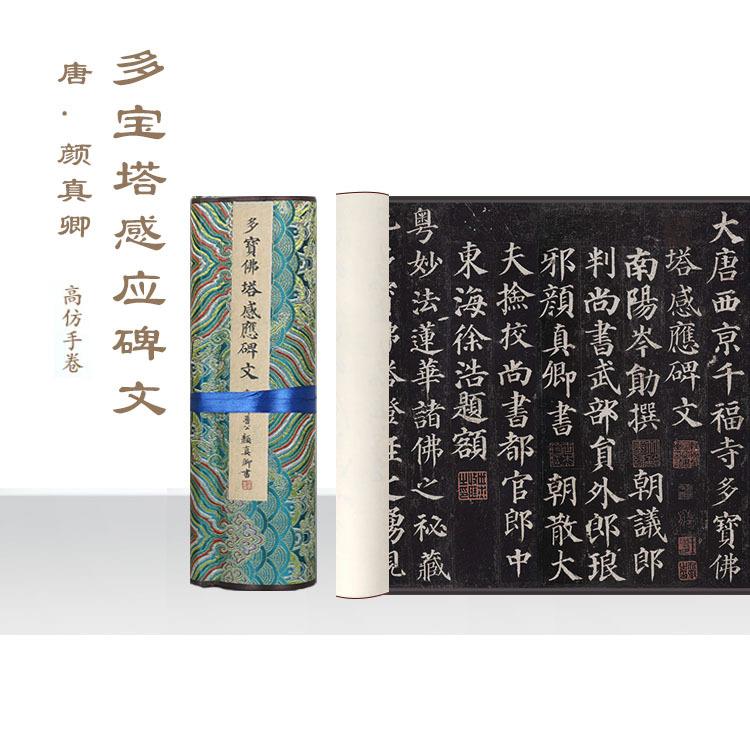 多宝塔感应碑文
唐·颜真卿
高仿手卷
多寶佛塔感應碑文
顏真卿書
大唐西京千福寺多寶佛
塔感應碑文
南陽岑勛撰 朝議郎
判尚書武部貟外郎琅
邪顏真卿書 朝散大
夫撿挍尚書都官郎中
東海徐浩題額
粤妙法蓮華諸佛之秘藏